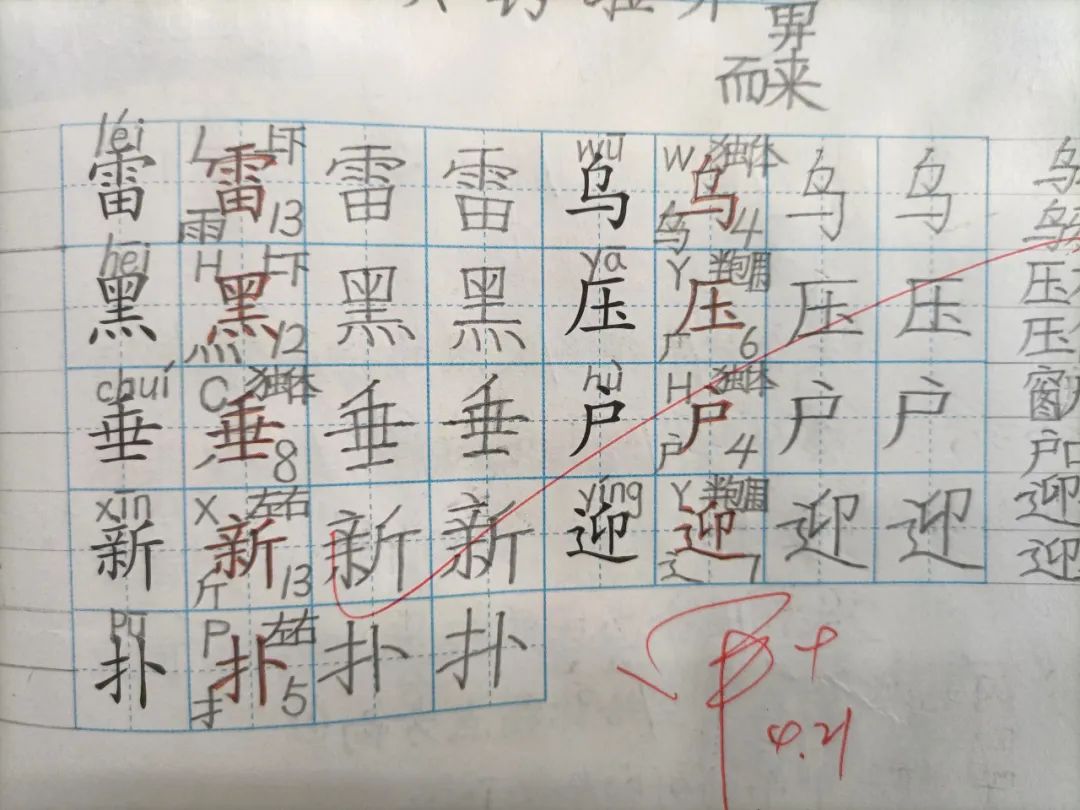 界
而来
léi L 上下 wū W 独体
雷 雷 雷 雷 乌 乌 乌 乌 乌
雨 13 乌 4 乌
hēi H 上下 yā Y 半包围
黑 黑 黑 黑 压 压 压 压 压
灬 12 厂 6 压
chuí C 独体 hù H 独体
垂 垂 垂 垂 户 户 户 户 窗户
丿 8 户 4 户口
xīn X 左右 yíng Y 半包围
新 新 新 新 迎 迎 迎 迎 迎
斤 13 辶 7 迎
pū P 左右
扑 扑 扑 扑
扌 5
4.21